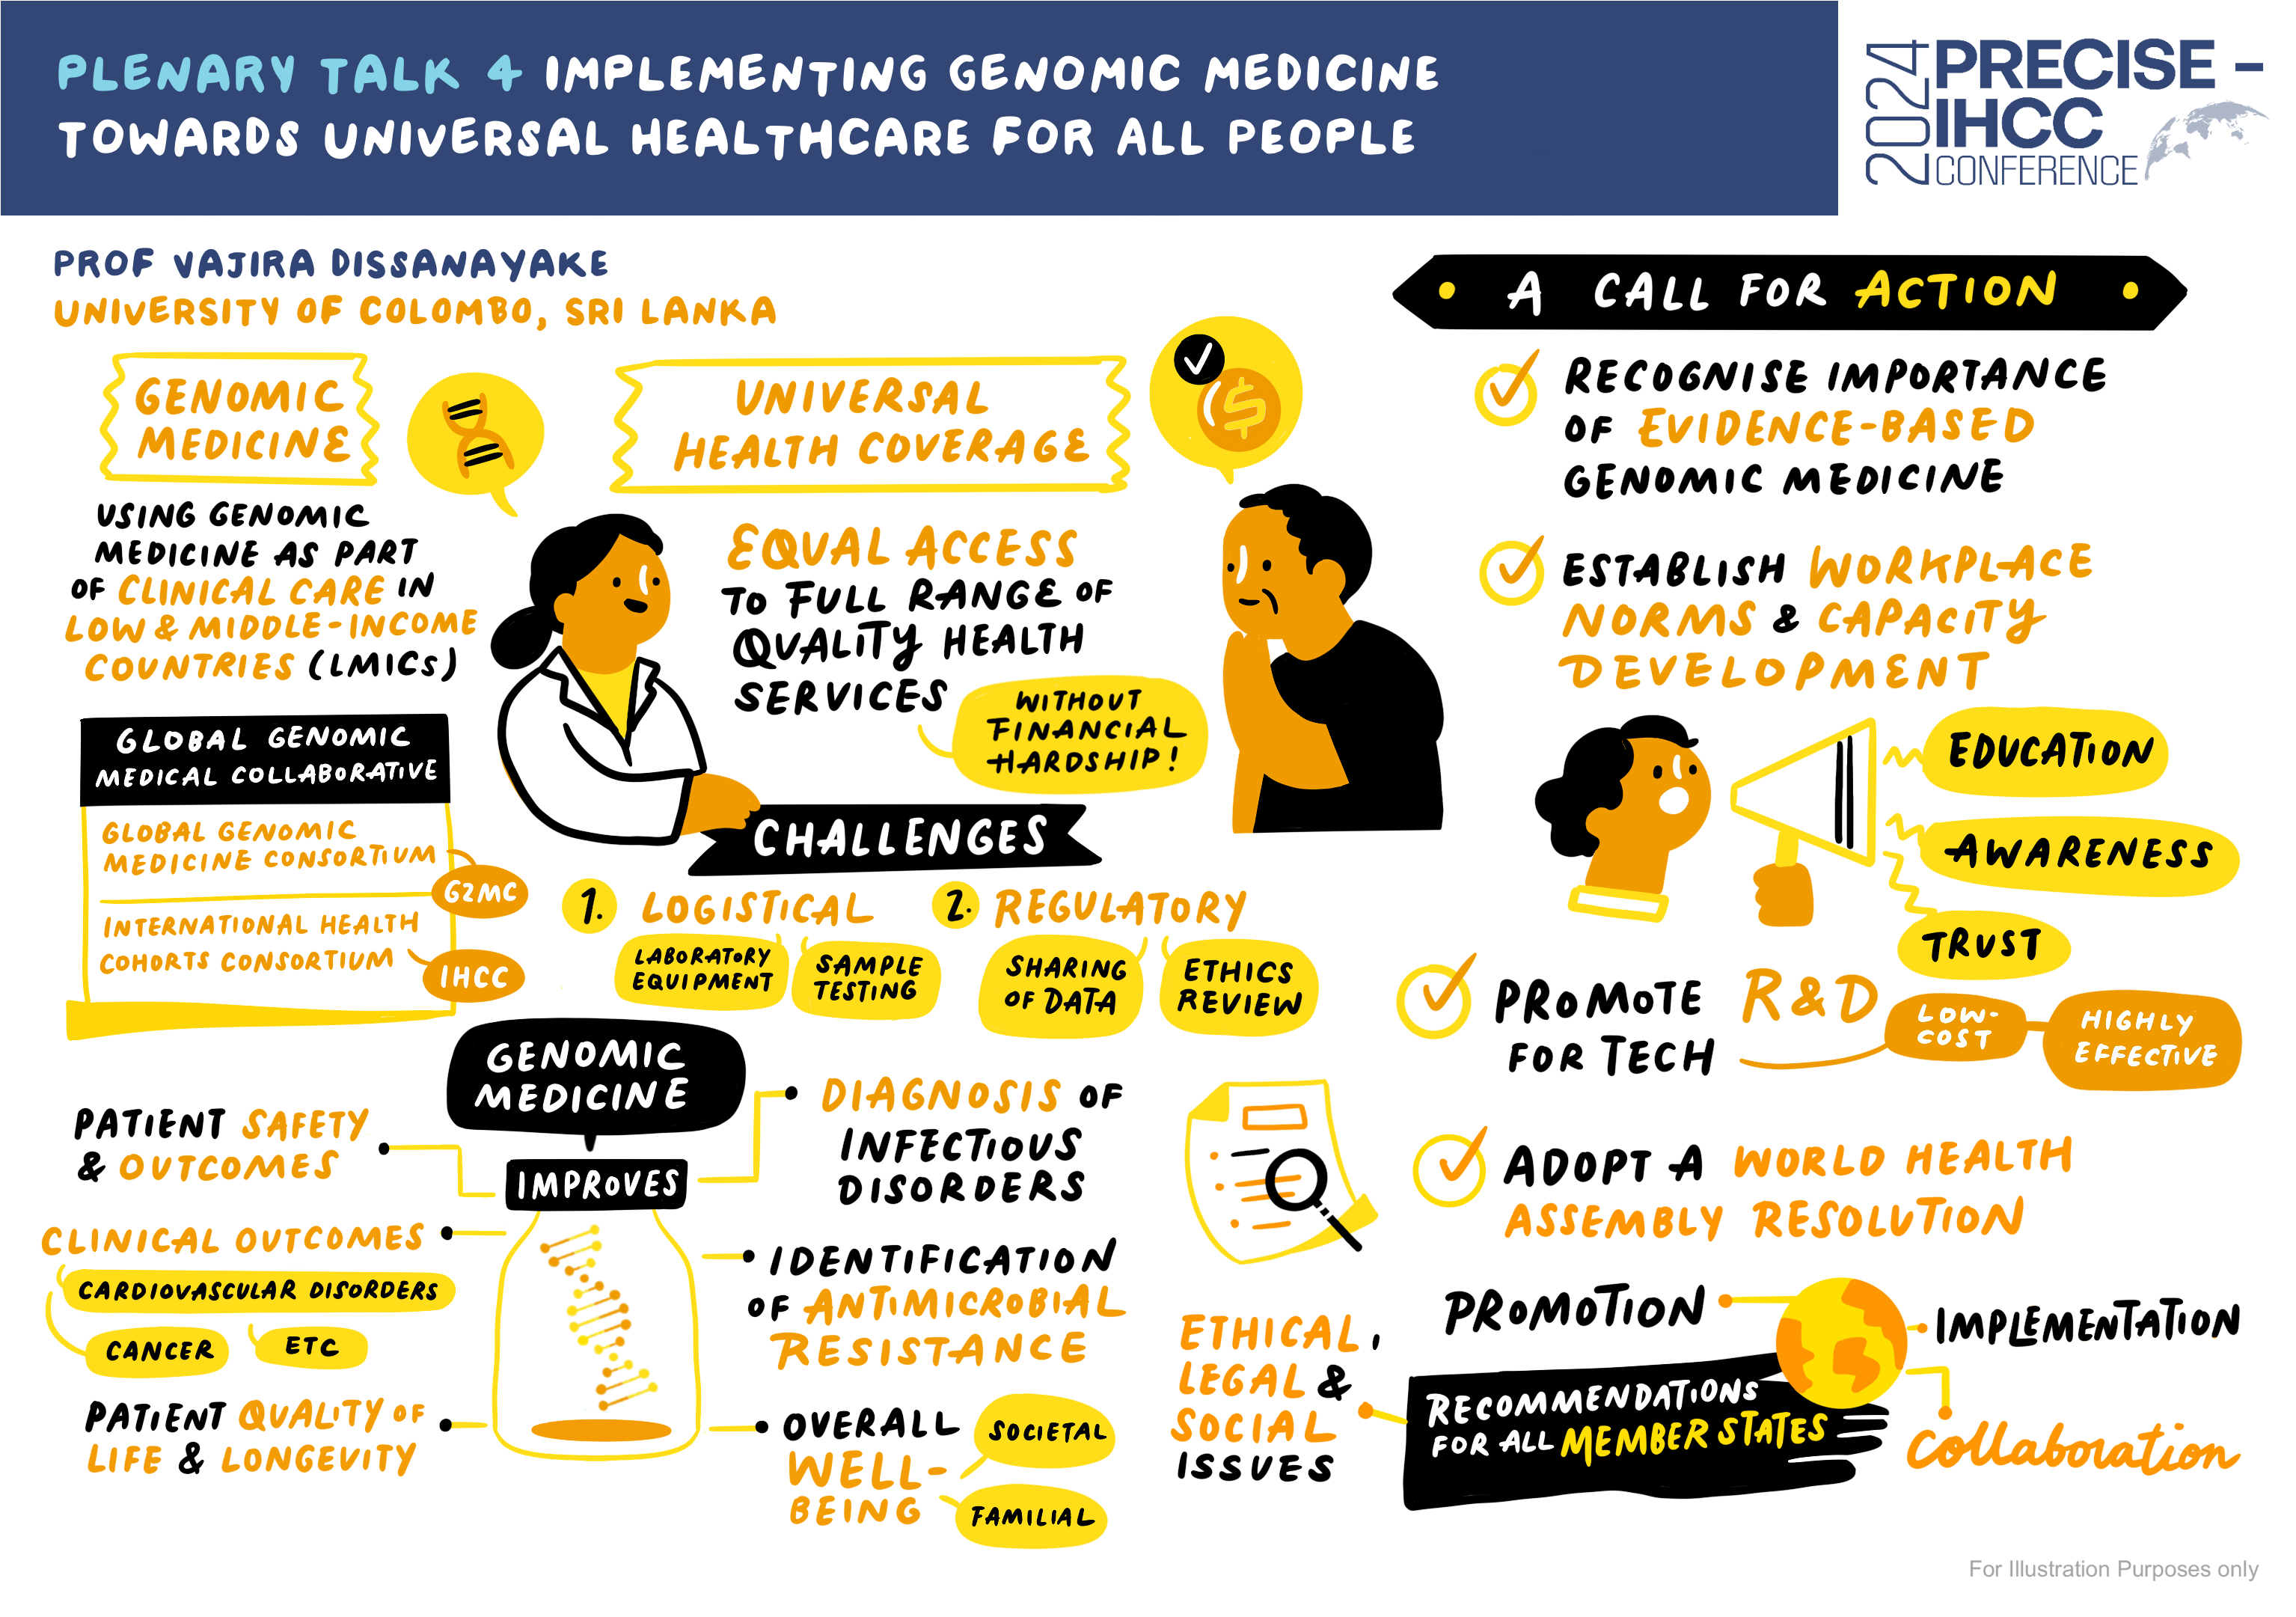 PLENARY TALK 4 IMPLEMENTING GENOMIC MEDICINE
TOWARDS UNIVERSAL HEALTHCARE FOR ALL PEOPLE
2024 PRECISE -
IHCC
CONFERENCE
PROF VAJIRA DISSANAYAKE
UNIVERSITY OF COLOMBO, SRI LANKA
GENOMIC
MEDICINE
USING GENOMIC
MEDICINE AS PART
OF CLINICAL CARE IN
LOW & MIDDLE-INCOME
COUNTRIES (LMICs)
GLOBAL GENOMIC
MEDICAL COLLABORATIVE
GLOBAL GENOMIC
MEDICINE CONSORTIUM
G2MC
INTERNATIONAL HEALTH
COHORTS CONSORTIUM
IHCC
UNIVERSAL
HEALTH COVERAGE
$
EQUAL ACCESS
TO FULL RANGE OF
QUALITY HEALTH
SERVICES
WITHOUT
FINANCIAL
HARDSHIP!
CHALLENGES
1. LOGISTICAL
LABORATORY
EQUIPMENT
SAMPLE
TESTING
2. REGULATORY
SHARING
OF DATA
ETHICS
REVIEW
GENOMIC
MEDICINE
IMPROVES
PATIENT SAFETY
& OUTCOMES
CLINICAL OUTCOMES
CARDIOVASCULAR DISORDERS
CANCER
ETC
PATIENT QUALITY OF
LIFE & LONGEVITY
DIAGNOSIS OF
INFECTIOUS
DISORDERS
IDENTIFICATION
OF ANTIMICROBIAL
RESISTANCE
OVERALL
WELL-
BEING
SOCIETAL
FAMILIAL
A CALL FOR ACTION
RECOGNISE IMPORTANCE
OF EVIDENCE-BASED
GENOMIC MEDICINE
ESTABLISH WORKPLACE
NORMS & CAPACITY
DEVELOPMENT
EDUCATION
AWARENESS
TRUST
PROMOTE R&D
FOR TECH
LOW-
COST
HIGHLY
EFFECTIVE
ADOPT A WORLD HEALTH
ASSEMBLY RESOLUTION
ETHICAL,
LEGAL &
SOCIAL
ISSUES
PROMOTION
IMPLEMENTATION
RECOMMENDATIONS
FOR ALL MEMBER STATES
Collaboration
For Illustration Purposes only